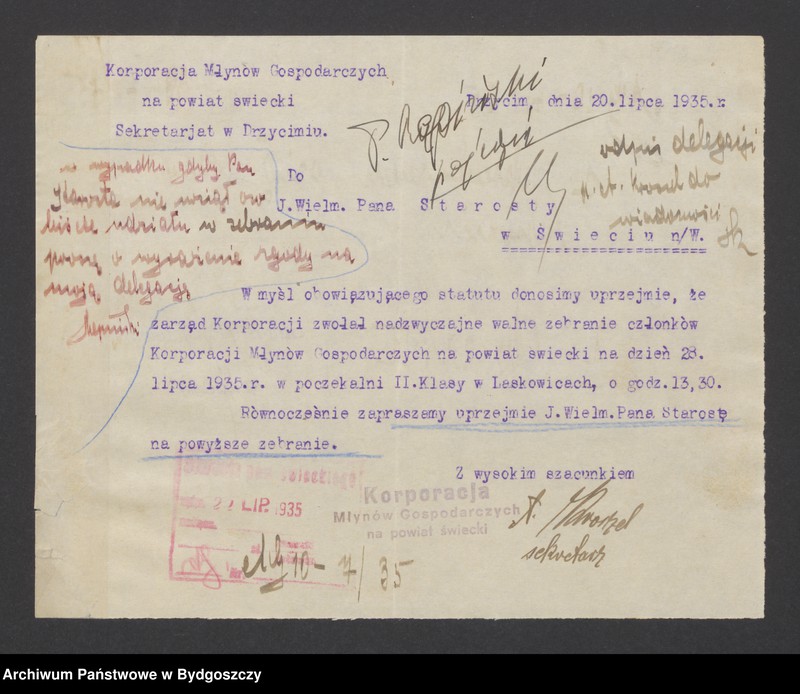 Korporacja Młynów Gospodarczych
na powiat swiecki
Sekretarjat w Drzycimiu.
Drzycim, dnia 20.lipca 1935.r.
P.
odpis delegacji
do
wiadomości
w wypadku gdyby Pan
Starosta nie wziął oso
biście udziału w zebraniu
proszę o wyrażenie zgody na
moją delegację
Do
J.Wielm. Pana Starosty
w Świeciu n/W.
W myśl obowiązującego statutu donosimy uprzejmie, że
zarząd Korporacji zwołał nadzwyczajne walne zebranie członków
Korporacji Młynów Gospodarczych na powiat swiecki na dzień 28.
lipca 1935.r. w poczekalni II.Klasy w Laskowicach, o godz.13,30.
Równocześnie zapraszamy uprzejmie J.Wielm.Pana Starostę
na powyższe zebranie.
Z wysokim szacunkiem
LIP. 1935
Korporacja
Młynów Gospodarczych
na powiat świecki
sekretarz
10- 7/35
Archiwum Państwowe w Bydgoszczy